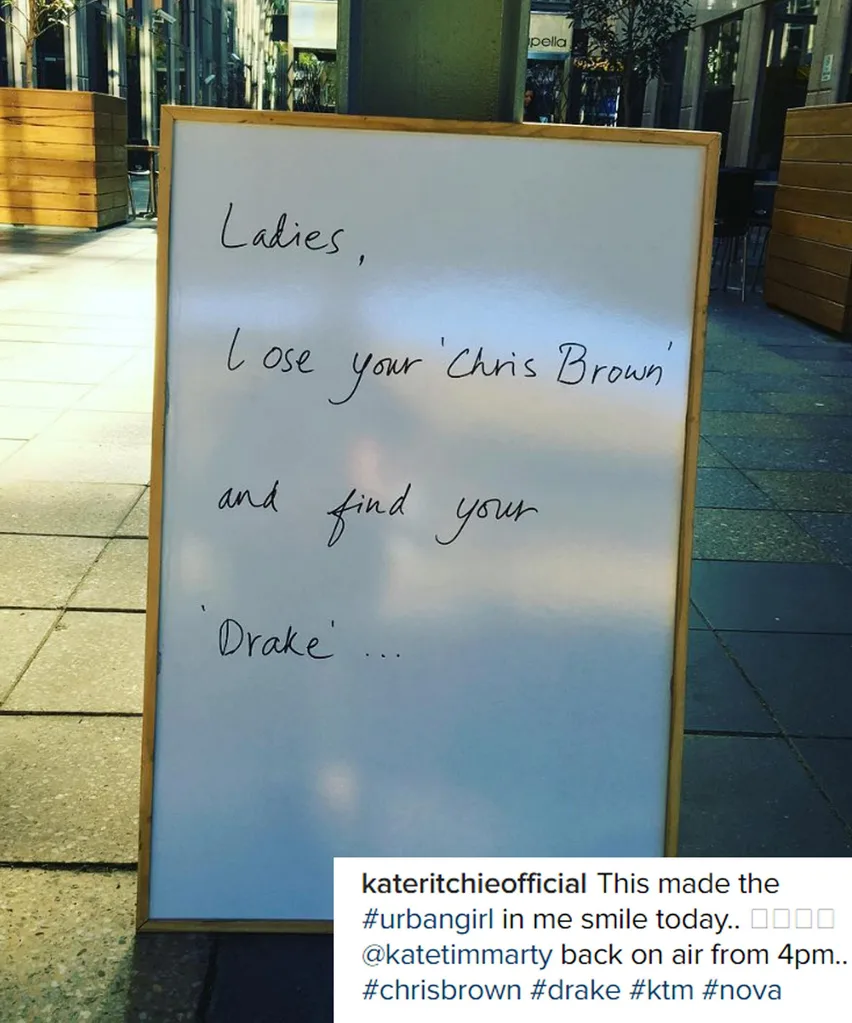 pella
Ladies,
Lose your 'Chris Brown'
and find your
'Drake' ...
kateritchieofficial This made the
#urbangirl in me smile today.. □□□□
@katetimmarty back on air from 4pm..
#chrisbrown #drake #ktm #nova